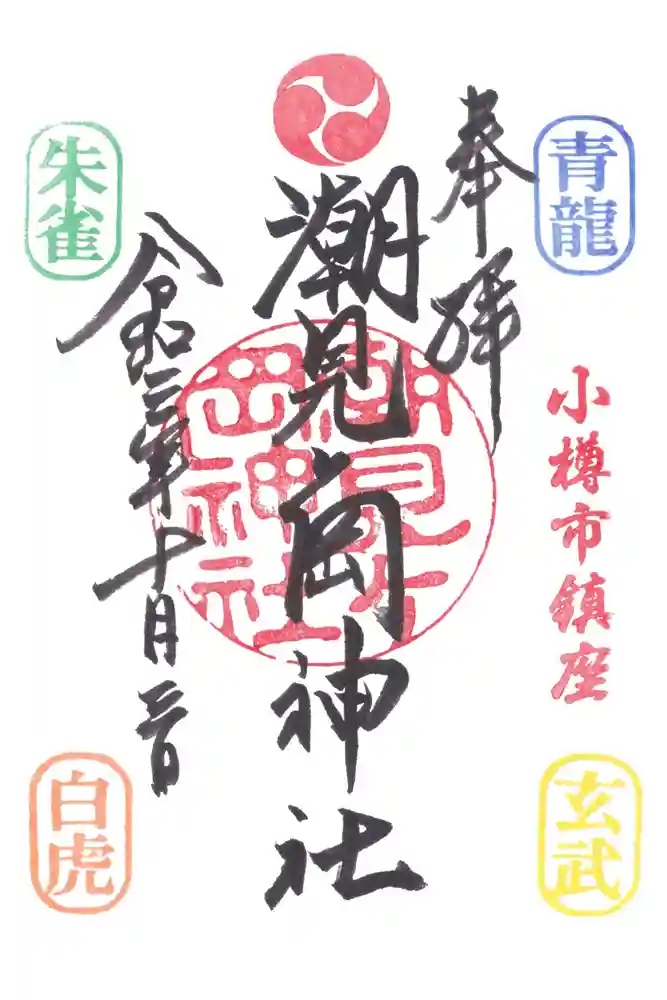 青龍
玄武
小樽市鎮座
奉拝
潮見岡神社
潮見ヶ
岡神社
令和三年十月
朱雀
白虎